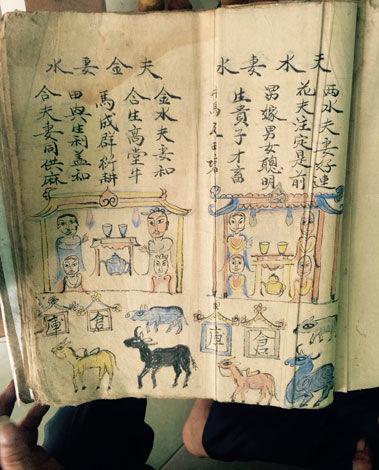 夫水妻水
兩水夫妻好連
花夫注定是前
男嫁男女聰明
生貴子才畜
夫金妻水
金水夫妻和
合生高堂牛
馬成群行耕
田與生利益和
合夫妻同供麻
倉
庫
倉
庫